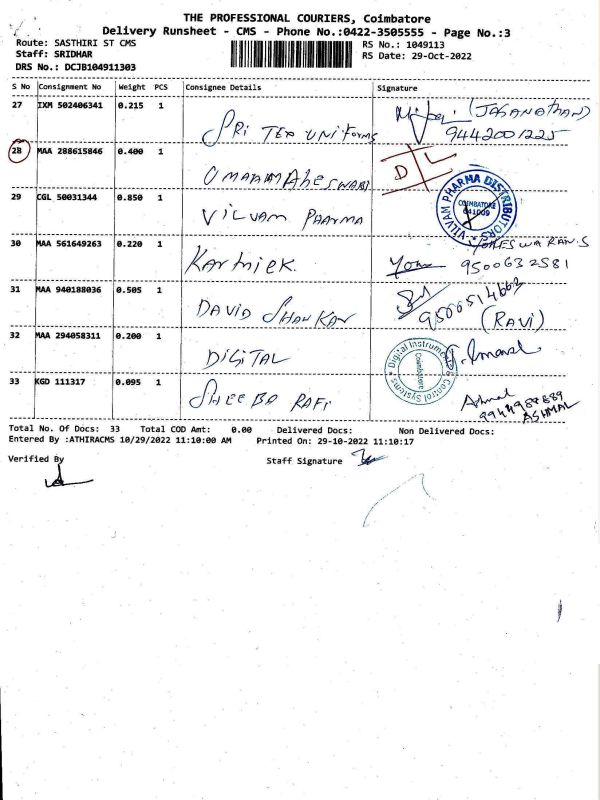 THE PROFESSIONAL COURIERS, Coimbatore
Delivery Runsheet - CMS - Phone No.:0422-3505555 - Page No.:3
Route: SASTHIRI ST CMS
Staff: SRIDHAR
DRS No.: DCJB104911303
RS No.: 1049113
RS Date: 29-Oct-2022
S No Consignment No Weight PCS Consignee Details Signature
27 IXM 502406341 0.215 1 SRI TEX UNIFORMS (JAGANATHAN)
9442001225
28 MAA 288615846 0.400 1 UMAMAHESWARI D L
29 CGL 50031344 0.850 1 VILVAM PHARMA VILVAM PHARMA DISTRIBUTORS COIMBATORE 641009
30 MAA 561649263 0.220 1 Karthiek. YOGESWARAN.S
9500632581
31 MAA 940188036 0.505 1 DAVID SHANKAR 9500514663
(RAVI)
32 MAA 294058311 0.200 1 DIGITAL Digital Instruments Control Systems Coimbatore
33 KGD 111317 0.095 1 SHEEBA RAFI
ASHMAL
Total No. Of Docs: 33 Total COD Amt: 0.00 Delivered Docs: Non Delivered Docs:
Entered By :ATHIRACMS 10/29/2022 11:10:00 AM Printed On: 29-10-2022 11:10:17
Verified By Staff Signature